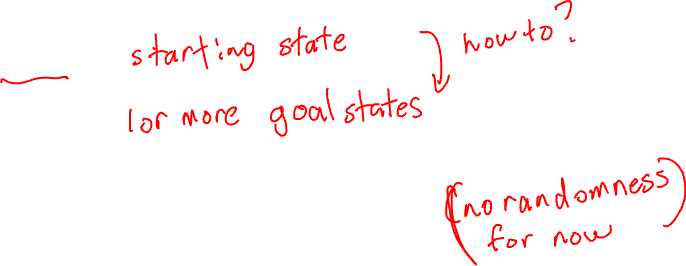 starting state
how to?
1 or more goal states
(no randomness
for now)